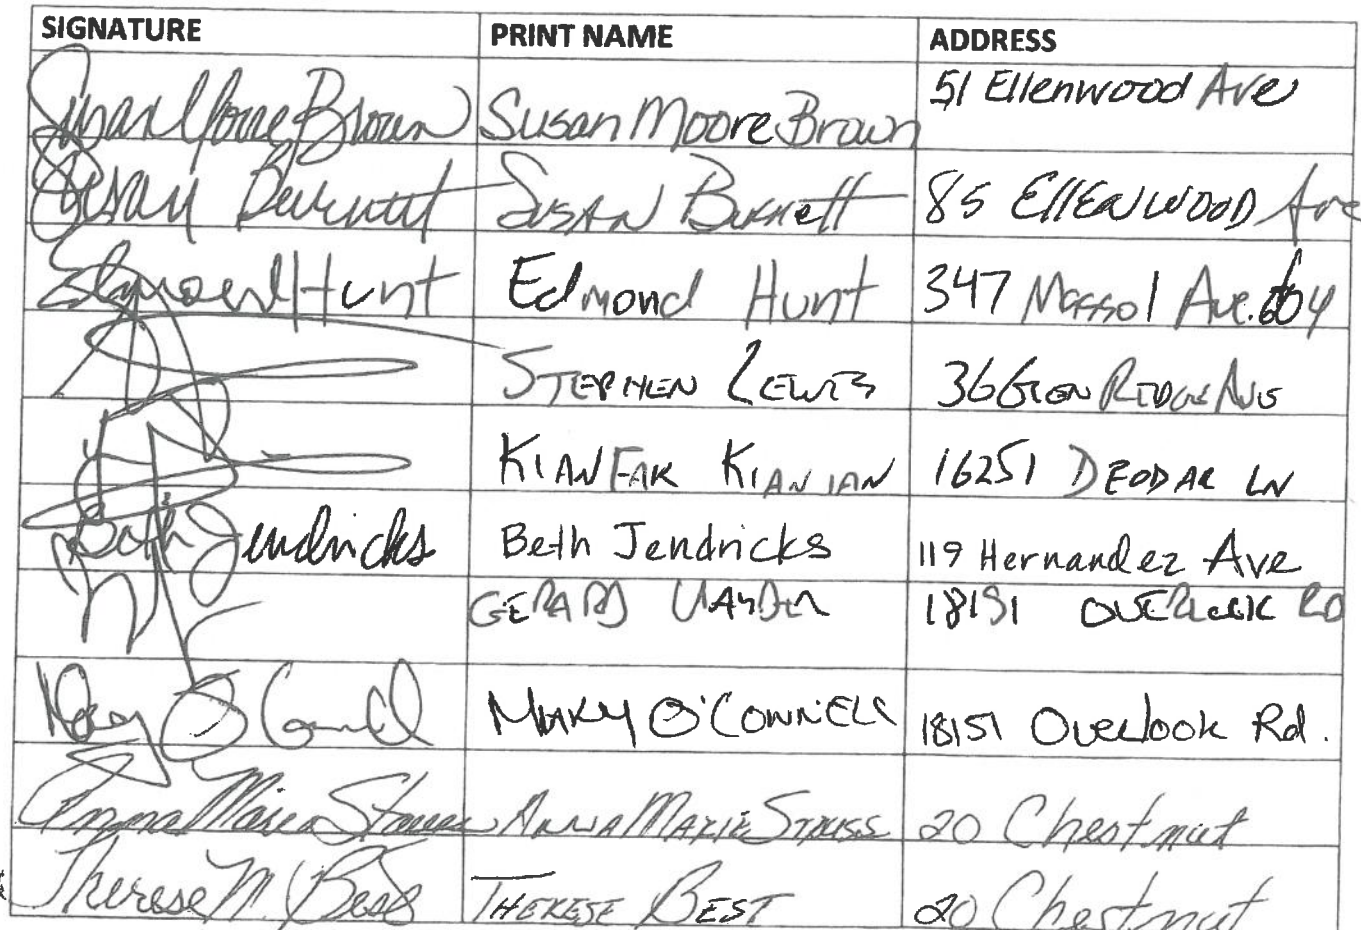 SIGNATURE PRINT NAME ADDRESS
Susan Moore Brown Susan Moore Brown 51 Ellenwood Ave
Susan Burnett SUSAN Burnett 85 EllENWOOD Ave
Edmond Hunt Edmond Hunt 347 Massol Ave. 604
STEPHEN LEWIS 36 GLEN RIDGE AVE
KIANFAR KIANIAN 16251 DEODAR LN
Beth Jendricks Beth Jendricks 119 Hernandez Ave
GERARD 18151 OVERLOOK RD
Mary O'Connell MARY O'CONNELL 18151 Overlook Rd.
Anna Marie Strauss ANNA MARIE 20 Chestnut
Therese M. Best THERESE BEST 20 Chestnut